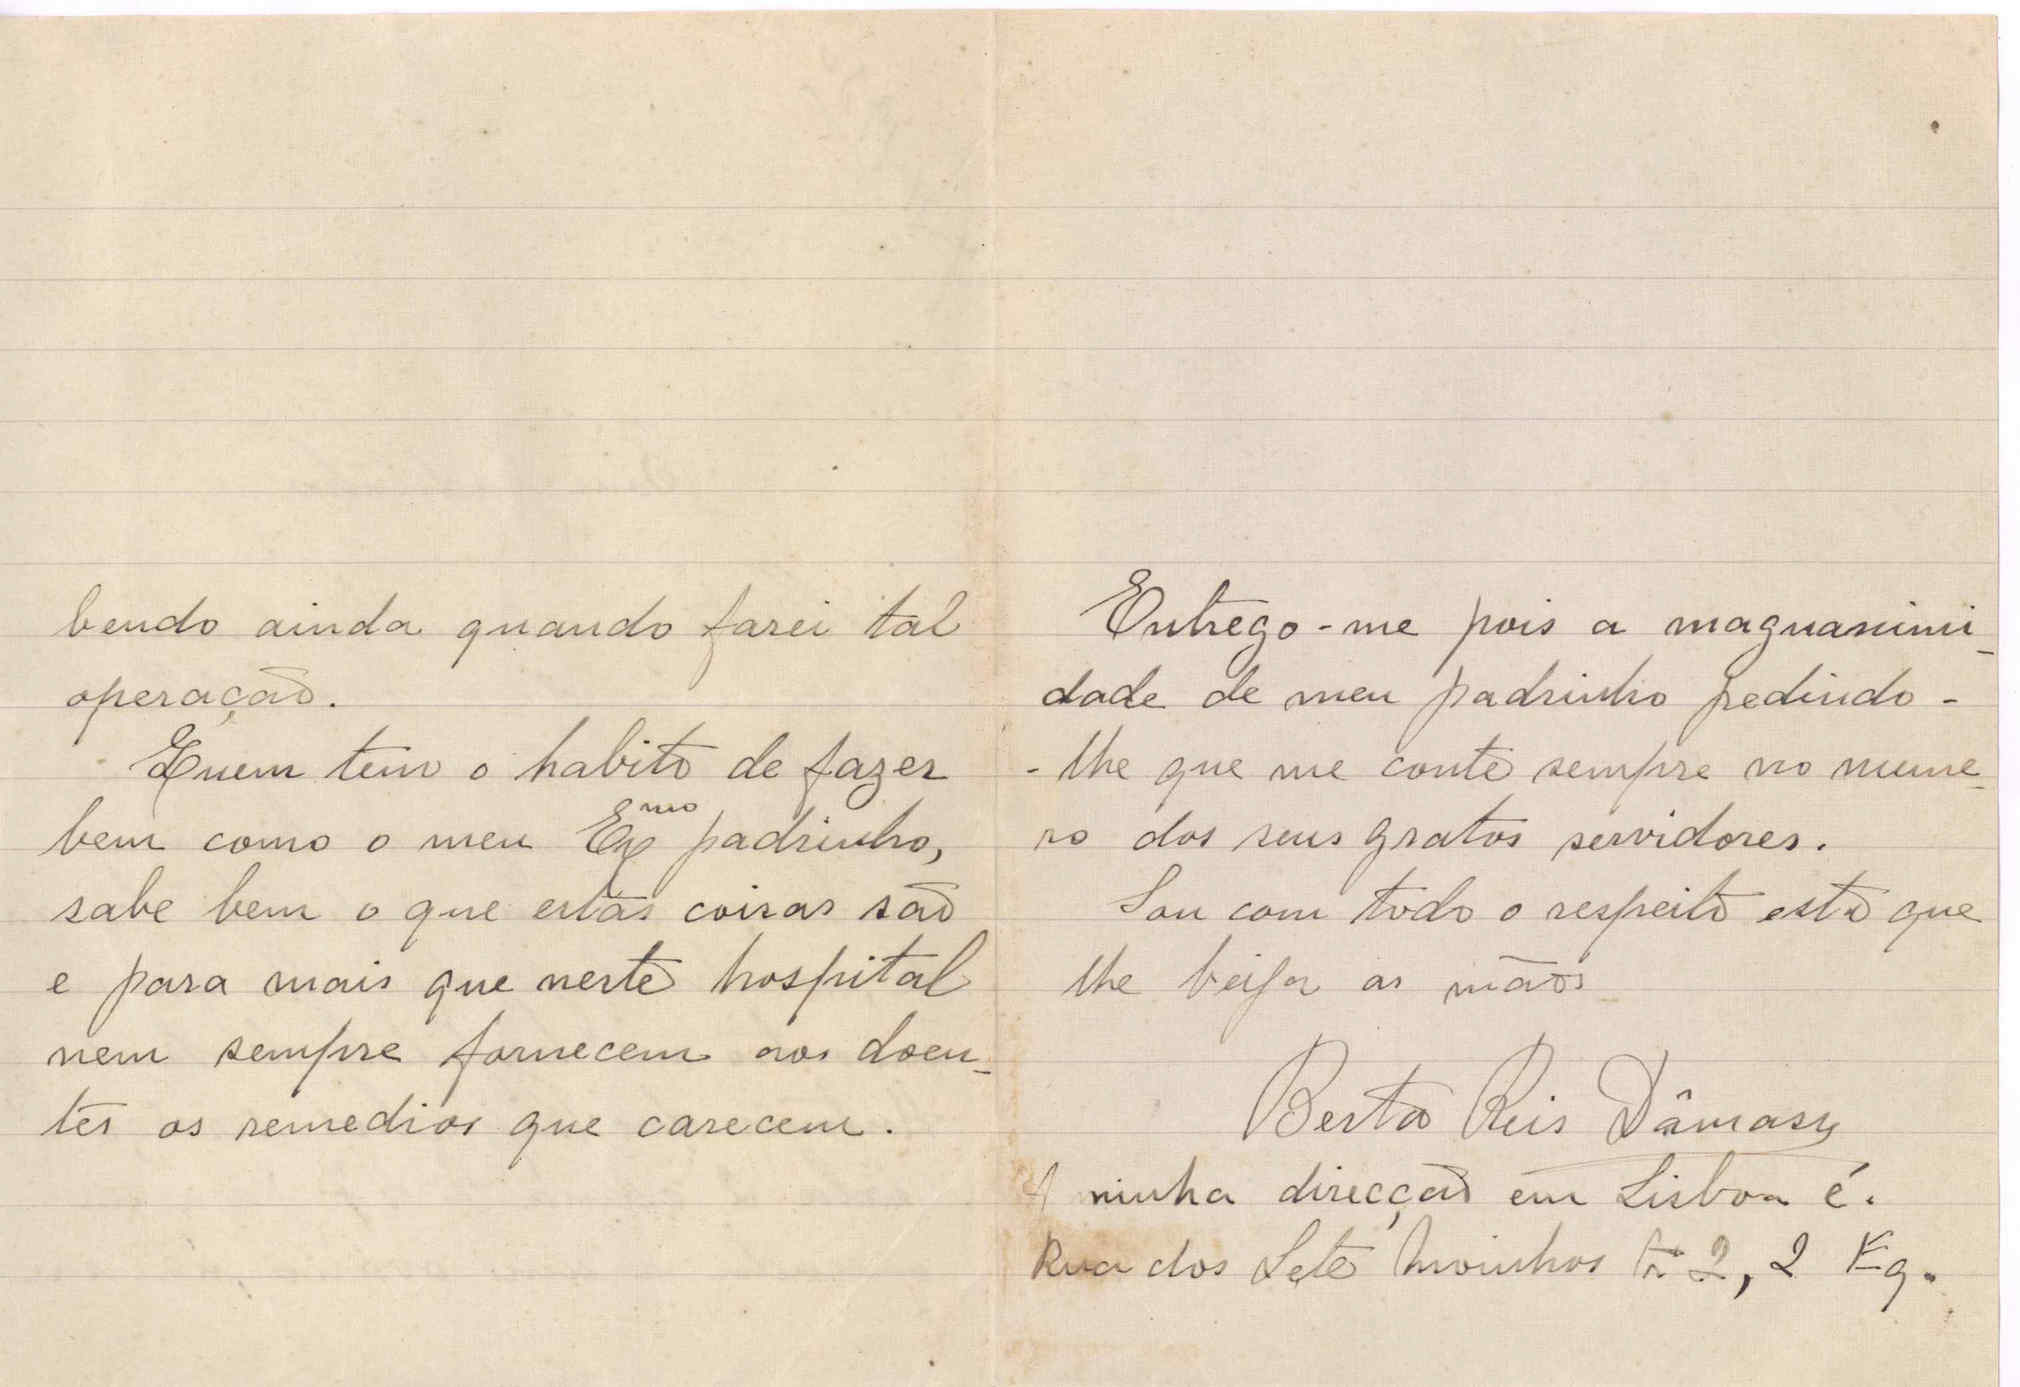 bendo ainda quando farei tal
operação.
Quem tem o habito de fazer
bem como o meu Exmo padrinho,
sabe bem o que estas coisas são
e para mais que neste hospital
nem sempre fornecem aos doen-
tes os remedios que carecem.
Entrego-me pois a magnanimi-
dade de meu padrinho pedindo-
-lhe que me conte sempre no nume-
ro dos seus gratos servidores.
Sou com todo o respeito esta que
lhe beija as mãos
Berta Reis Dâmaso
A minha direcção em Lisboa é.
Rua dos Sete Moinhos 2, 2 Eq.